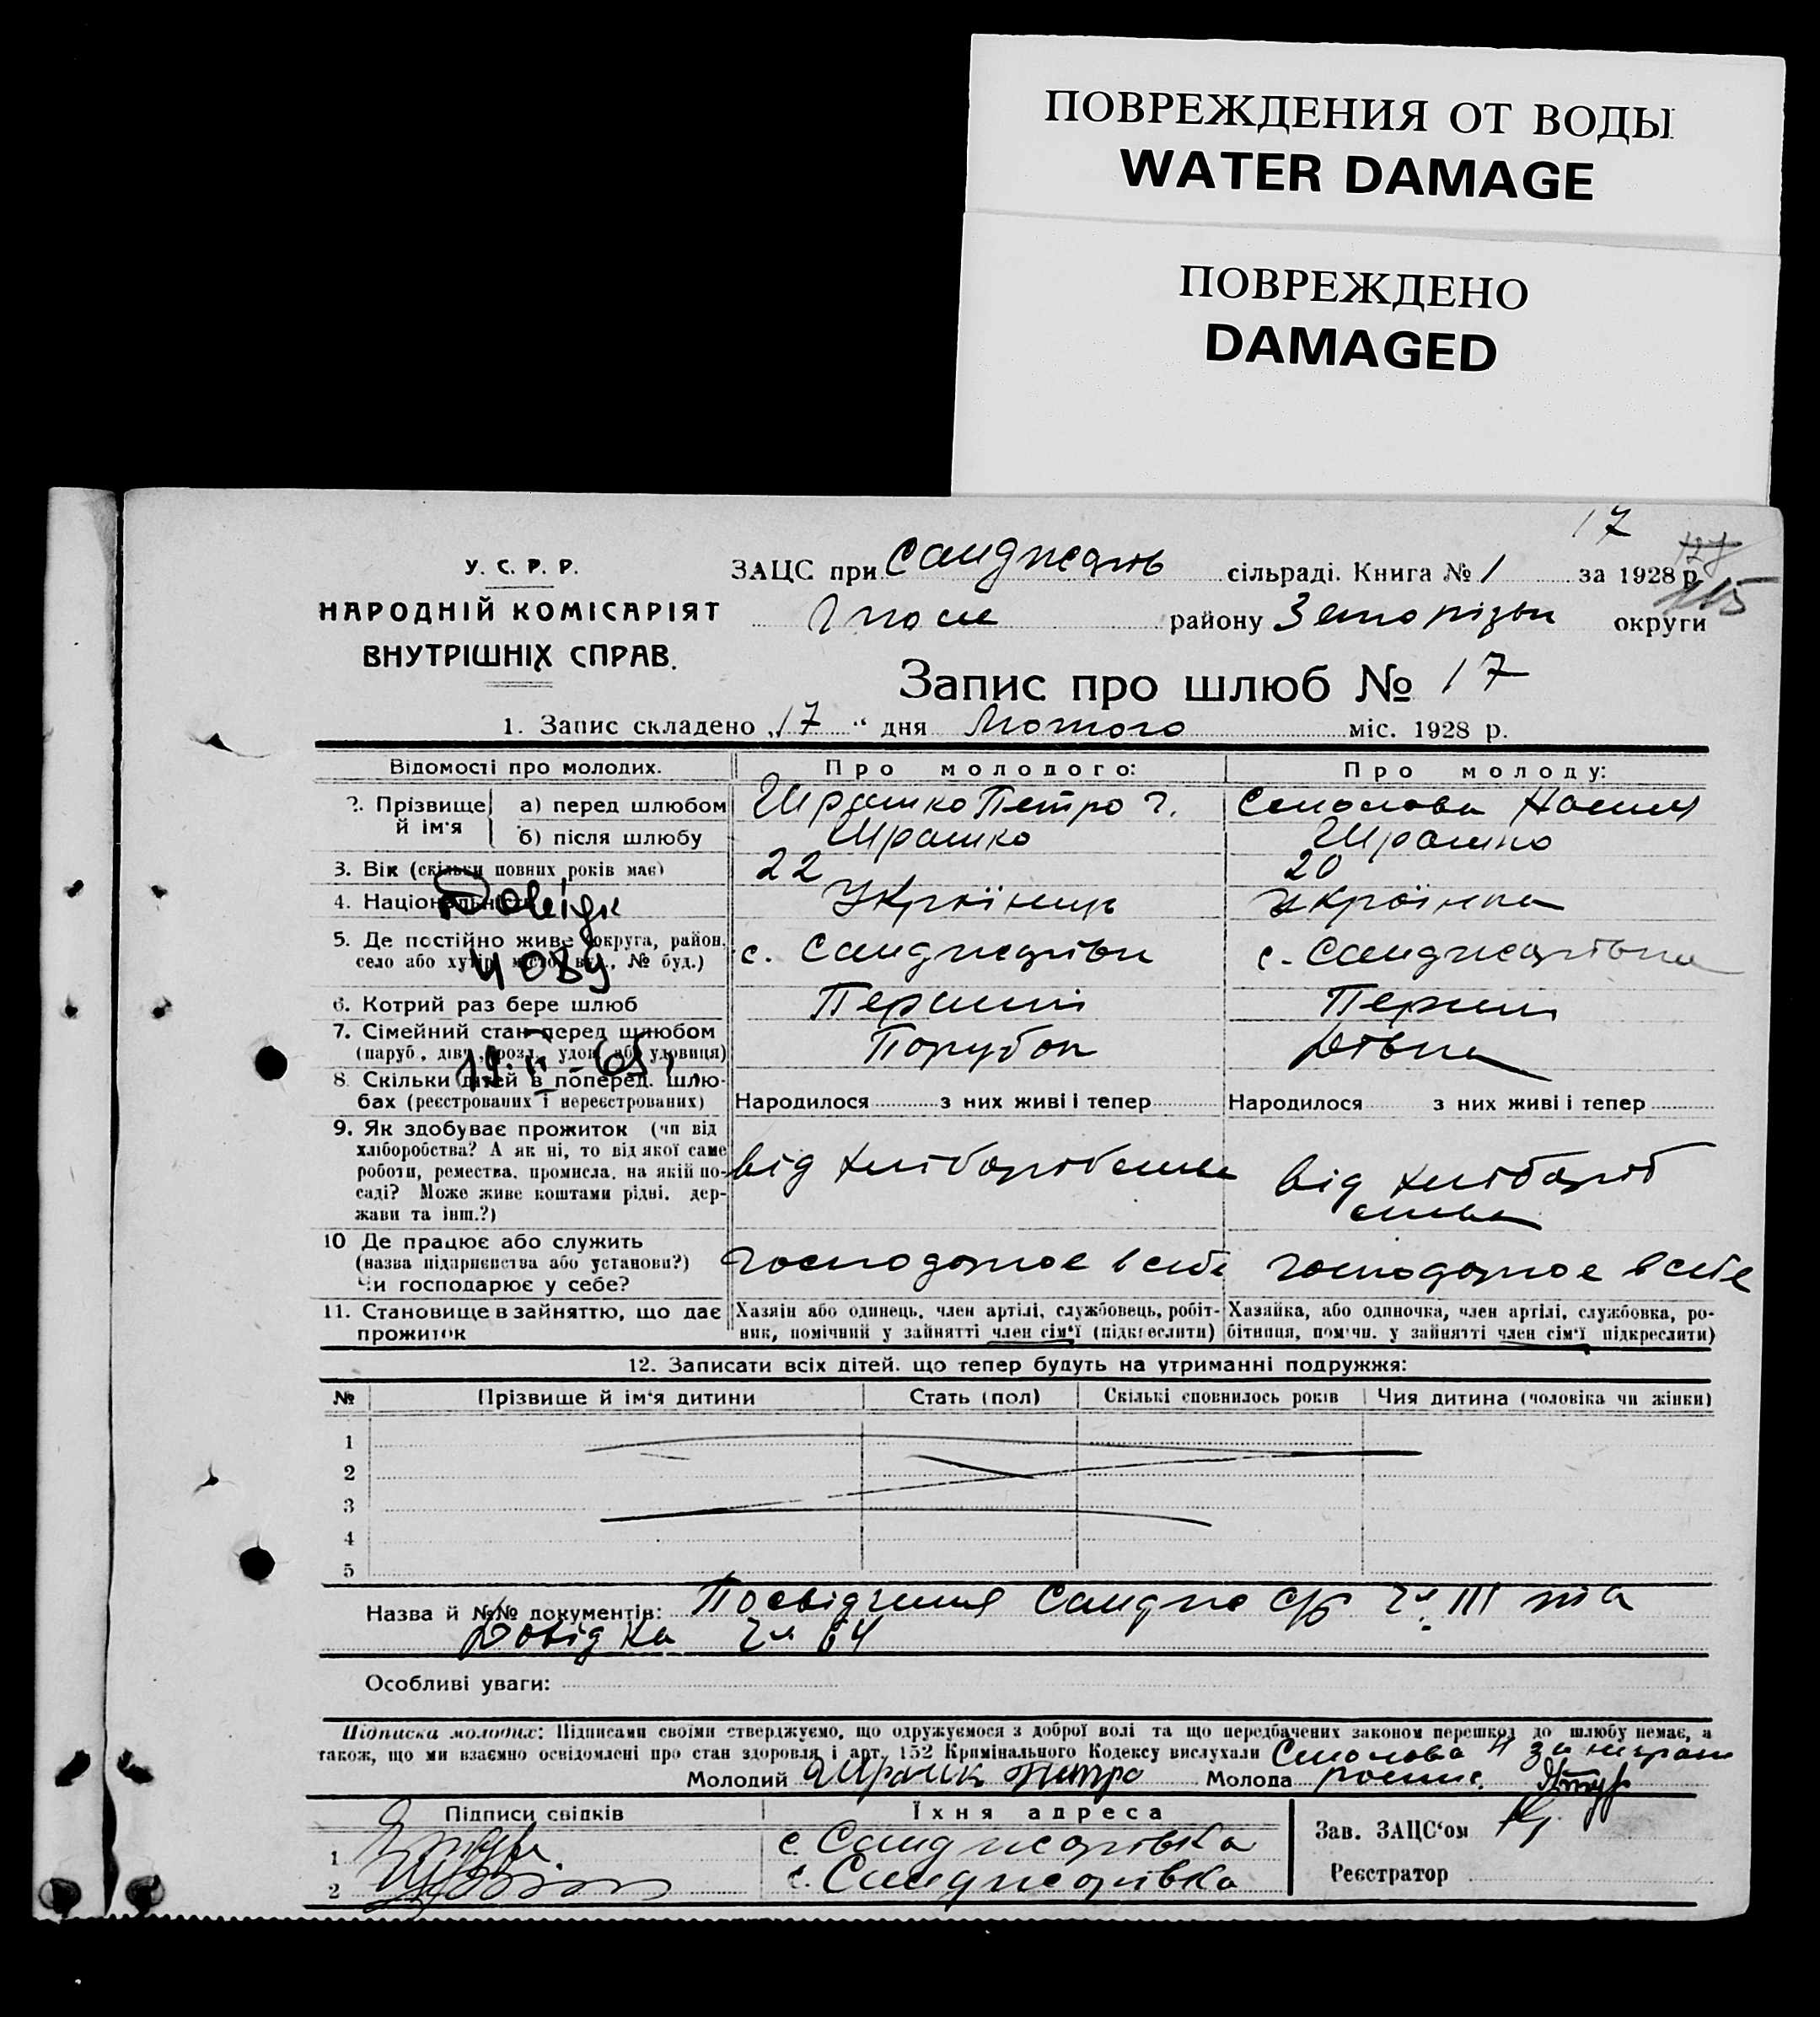 ПОВРЕЖДЕНИЯ ОТ ВОДЫ
WATER DAMAGE
ПОВРЕЖДЕНО
DAMAGED
17
127
115
У. С. Р. Р.
НАРОДНІЙ КОМІСАРІЯТ
ВНУТРІШНІХ СПРАВ.
ЗАЦС при Санджарів сільраді. Книга № 1 за 1928 р.
району Запорізьк округи
Запис про шлюб № 17
1. Запис складено „17" дня Лютого міс. 1928 р.
Відомості про молодих. Про молодого: Про молоду:
2. Прізвище й ім'я
а) перед шлюбом Ширашко Петро Настя
б) після шлюбу Ширашко Ширашко
3. Вік (скільки повних років має) 22 20
4. Національність Українець Українка
Довідк
5. Де постійно живе (округа, район, село або хутір, місто, вул., № буд.) с. Санджарівк с. Санджарівка
4089
6. Котрий раз бере шлюб Перший Перший
7. Сімейний стан перед шлюбом Парубок Дівка
(паруб., дівч., розл., удов. або удовиця)
8. Скільки дітей в поперед. шлюбах (реєстрованих і нереєстрованих)
Народилося з них живі і тепер Народилося з них живі і тепер
9. Як здобуває прожиток (чи від
хліборобства? А як ні, то від якої саме
роботи, ремества, промисла, на якій по-
саді? Може живе коштами рідні, дер-
жави та інш.?)
від хліборобства від хлібороб
ства
10 Де працює або служить
(назва підприємства або установи?)
Чи господарює у себе?
господарює в себе господарює в себе
11. Становище в зайняттю, що дає
прожиток
Хазяїн або одинець, член артілі, службовець, робіт-
ник, помічний у зайнятті член сім'ї (підкреслити)
Хазяйка, або одиночка, член артілі, службовка, ро-
бітниця, помічн. у зайнятті член сім'ї підкреслити)
12. Записати всіх дітей, що тепер будуть на утриманні подружжя:
№ Прізвище й ім'я дитини Стать (пол) Скількі сповнилось років Чия дитина (чоловіка чи жінки)
1
2
3
4
5
Назва й №№ документів: Посвідчення Сандж с/р Чл. III та
Довідка Чл 64
Особливі уваги:
Підписка молодих: Підписами своїми стверджуємо, що одружуємося з доброї волі та що передбачених законом перешкод до шлюбу немає, а
також, що ми взаємно освідомлені про стан здоровля і арт. 152 Кримінального Кодексу вислухали
Молодий Петро Молода
Підписи свідків Їхня адреса
1 с. Санджарівка
2 с. Санджарівка
Зав. ЗАЦС'ом
Реєстратор